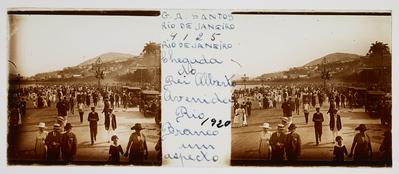 G. A. SANTOS
RIO DE JANEIRO
4125
RIO DE JANEIRO
Chegada
do
Rei Alberto
Avenida
Rio
1920
Branco
um
aspecto